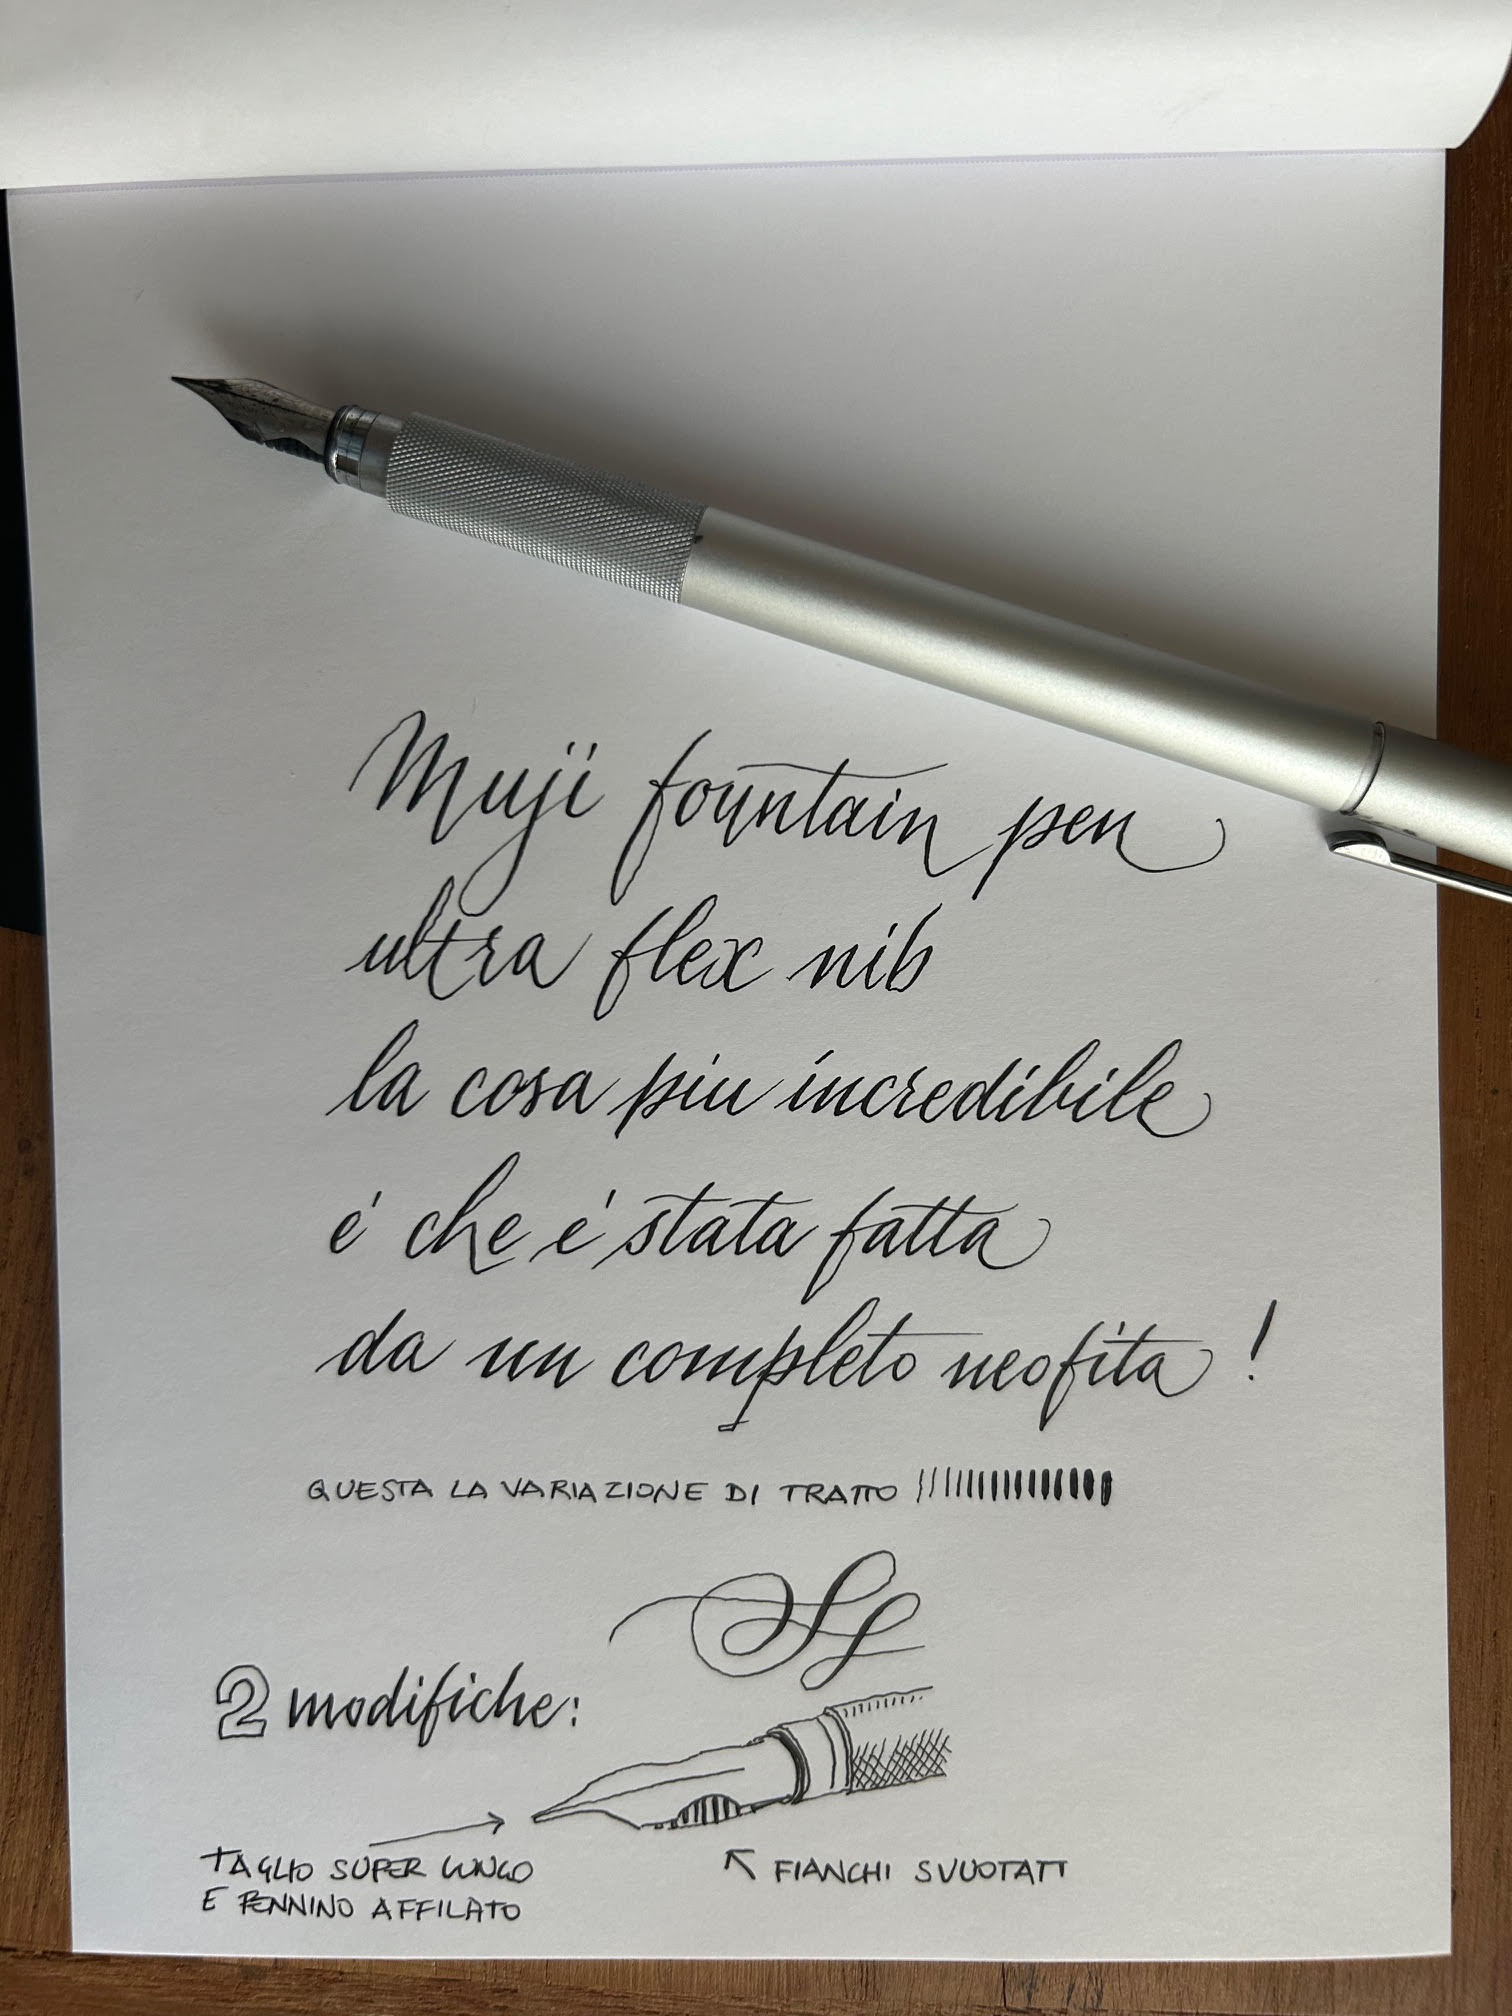 Muji fountain pen
ultra flex nib
la cosa piu incredibile
é che é stata fatta
da un completo neofita !
QUESTA LA VARIAZIONE DI TRATTO
2 modifiche:
TAGLIO SUPER LUNGO
E PENNINO AFFILATO
FIANCHI SVUOTATI